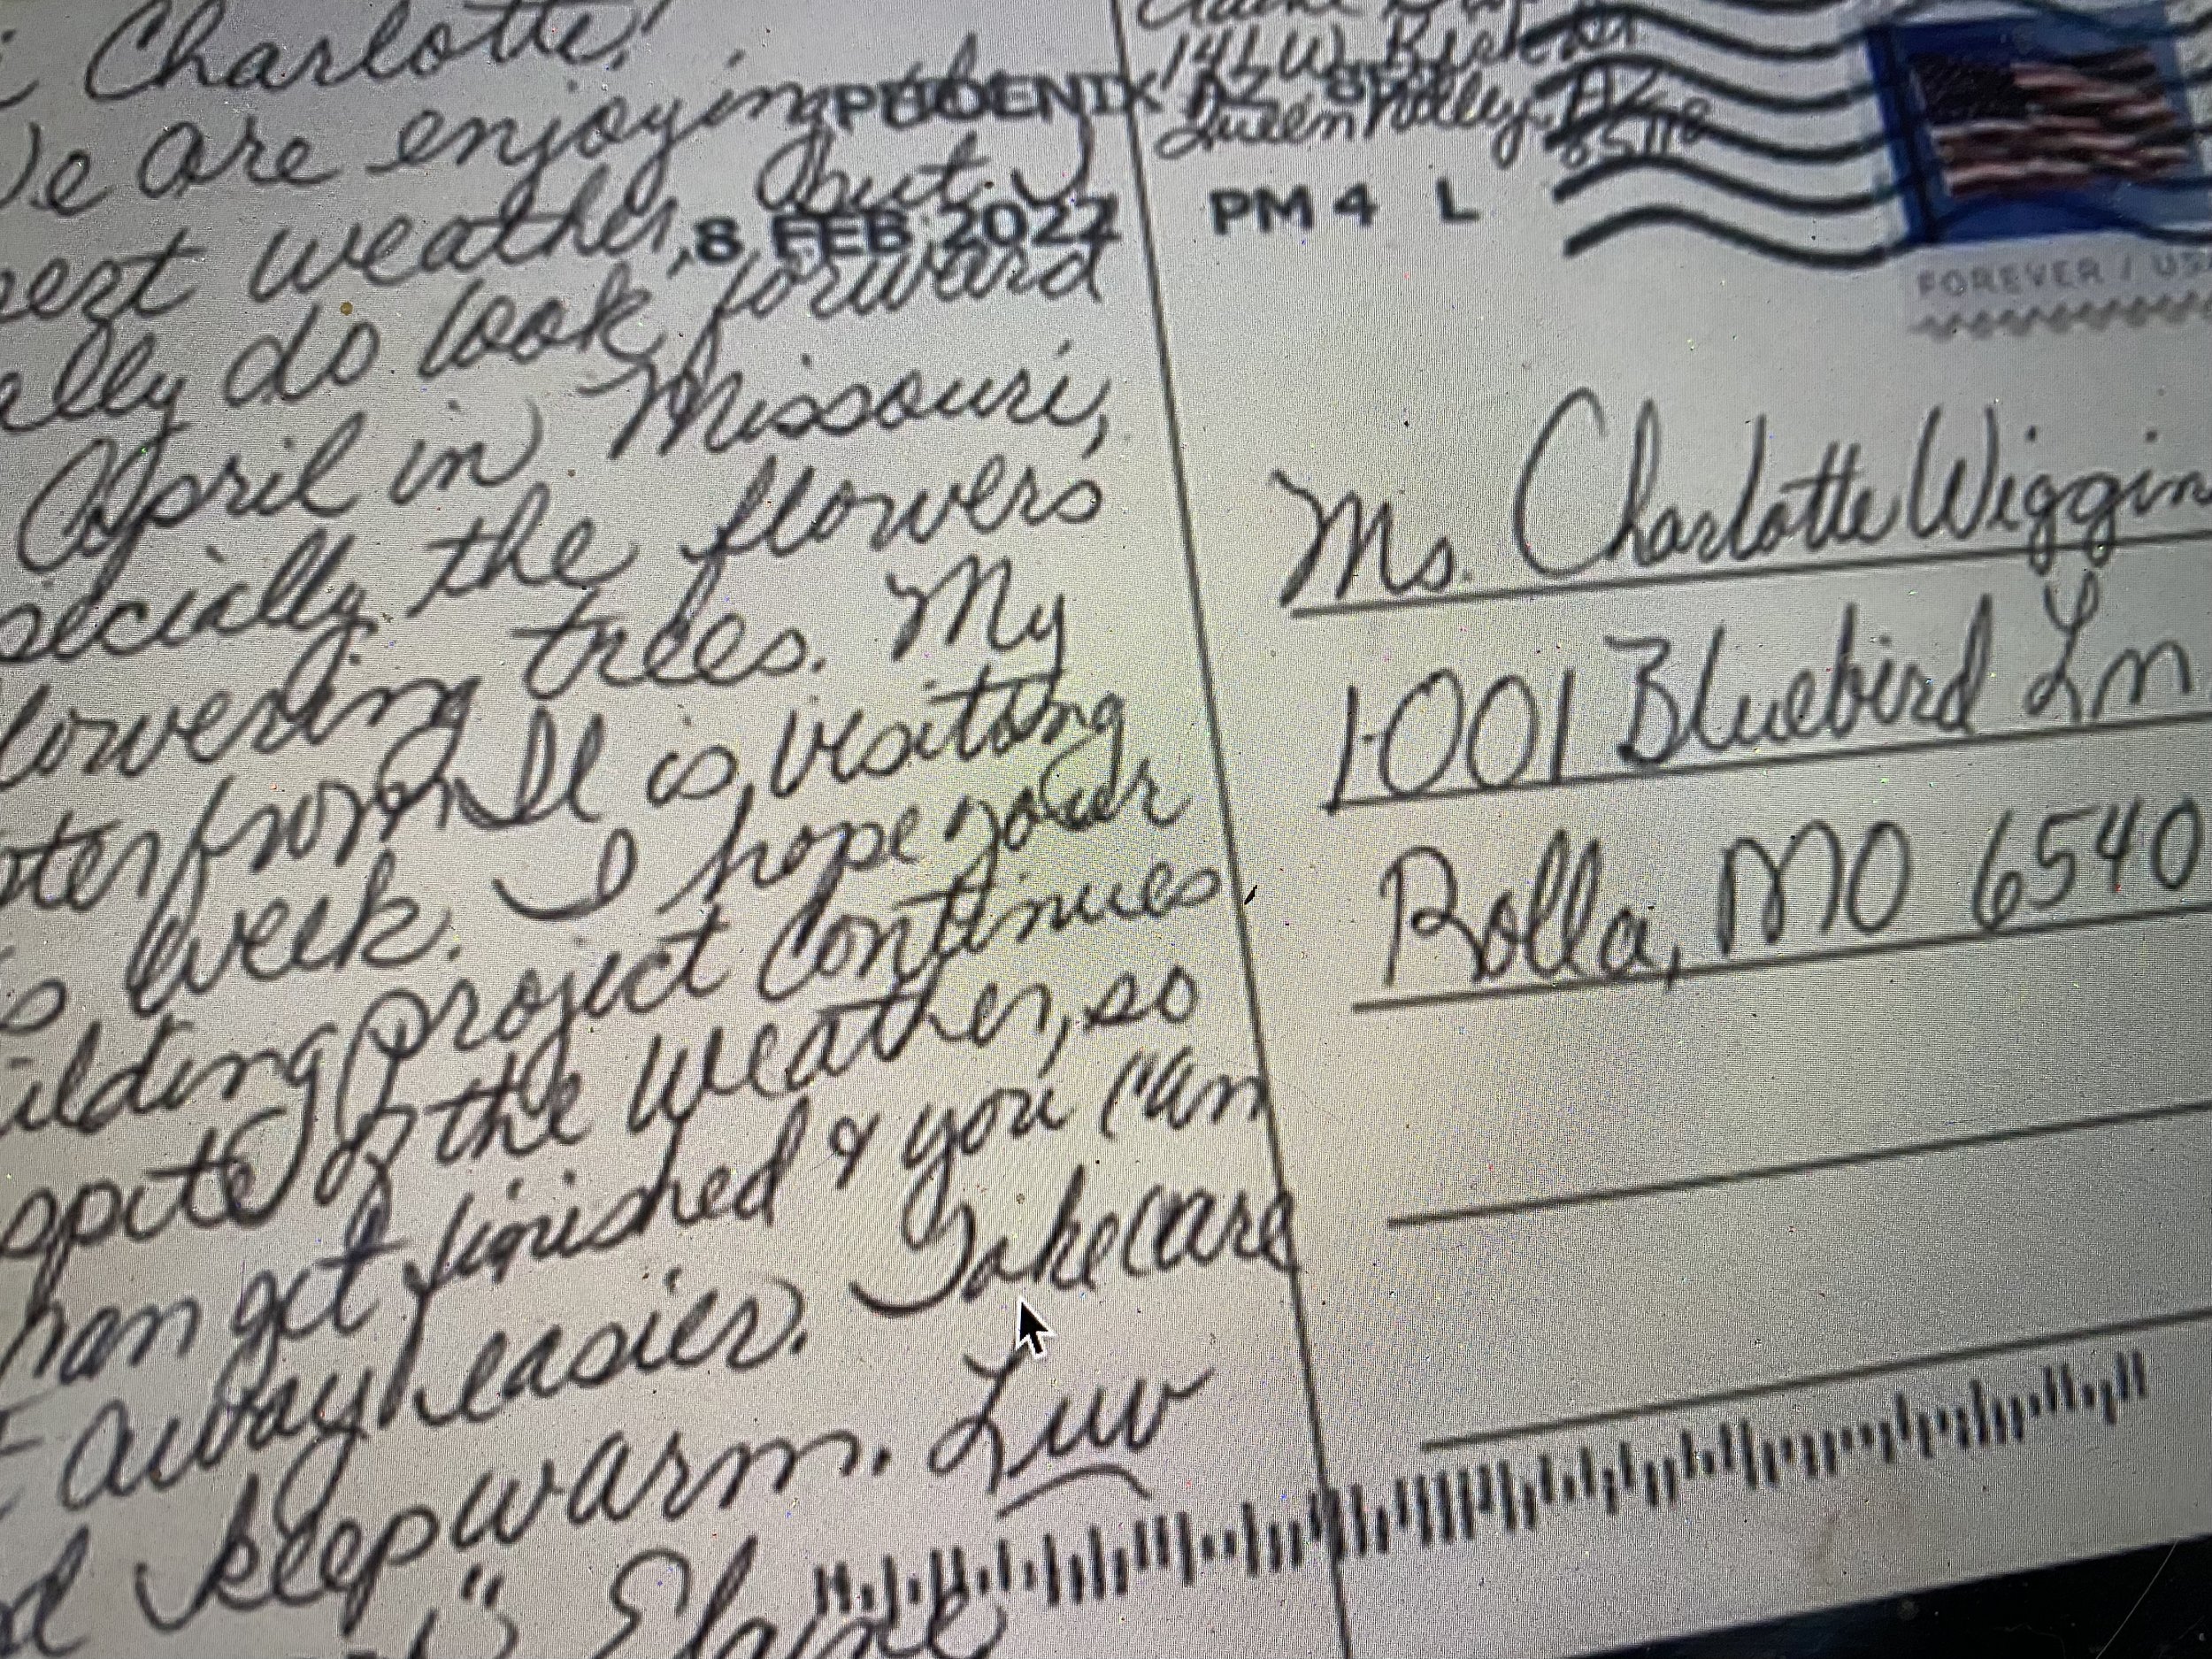 Charlotte!
We are enjoying the
weather, but
do look forward
April in Missouri,
the flowers
trees. My
from Il is visiting
week. I hope your
project continues
spite of the weather, so
get finished & you can
away easier. Take care
keep warm. Luv
Elaine
PHOENIX AZ
8 FEB 2022 PM 4 L
Queen Valley, AZ
85118
FOREVER / USA
Ms. Charlotte Wiggin
1001 Bluebird Ln
Rolla, MO 6540